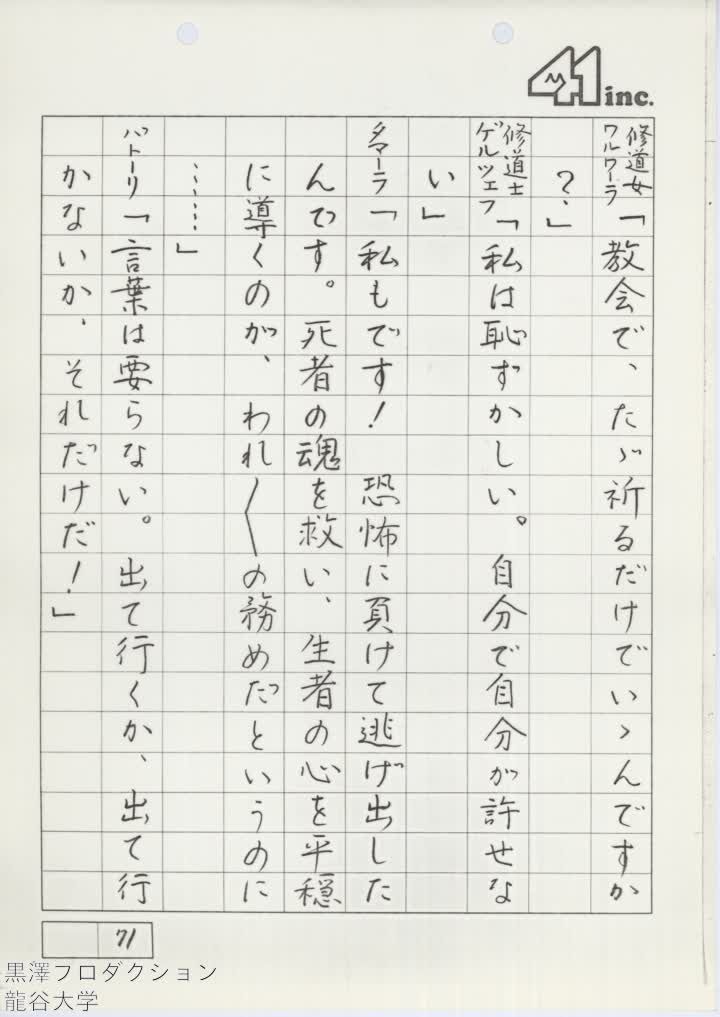 41 inc.
修道女ワルワーラ「教会で、たゞ祈るだけでいゝんですか
？」
修道士ゲルツェフ「私は恥ずかしい。自分で自分が許せな
い」
タマーラ「私もです！　恐怖に負けて逃げ出した
んです。死者の魂を救い、生者の心を平穏
に導くのが、われ〳〵の務めだというのに
……」
パトーリ「言葉は要らない。出て行くか、出て行
かないか、それだけだ！」
71
黒澤プロダクション
龍谷大学